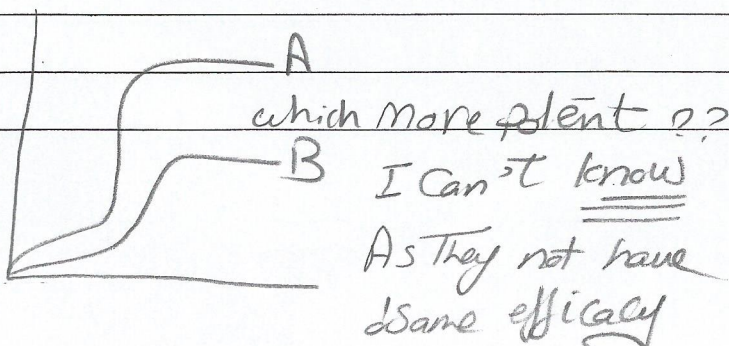 A
which more potent ??
B
I Can't know
As They not have
same efficacy